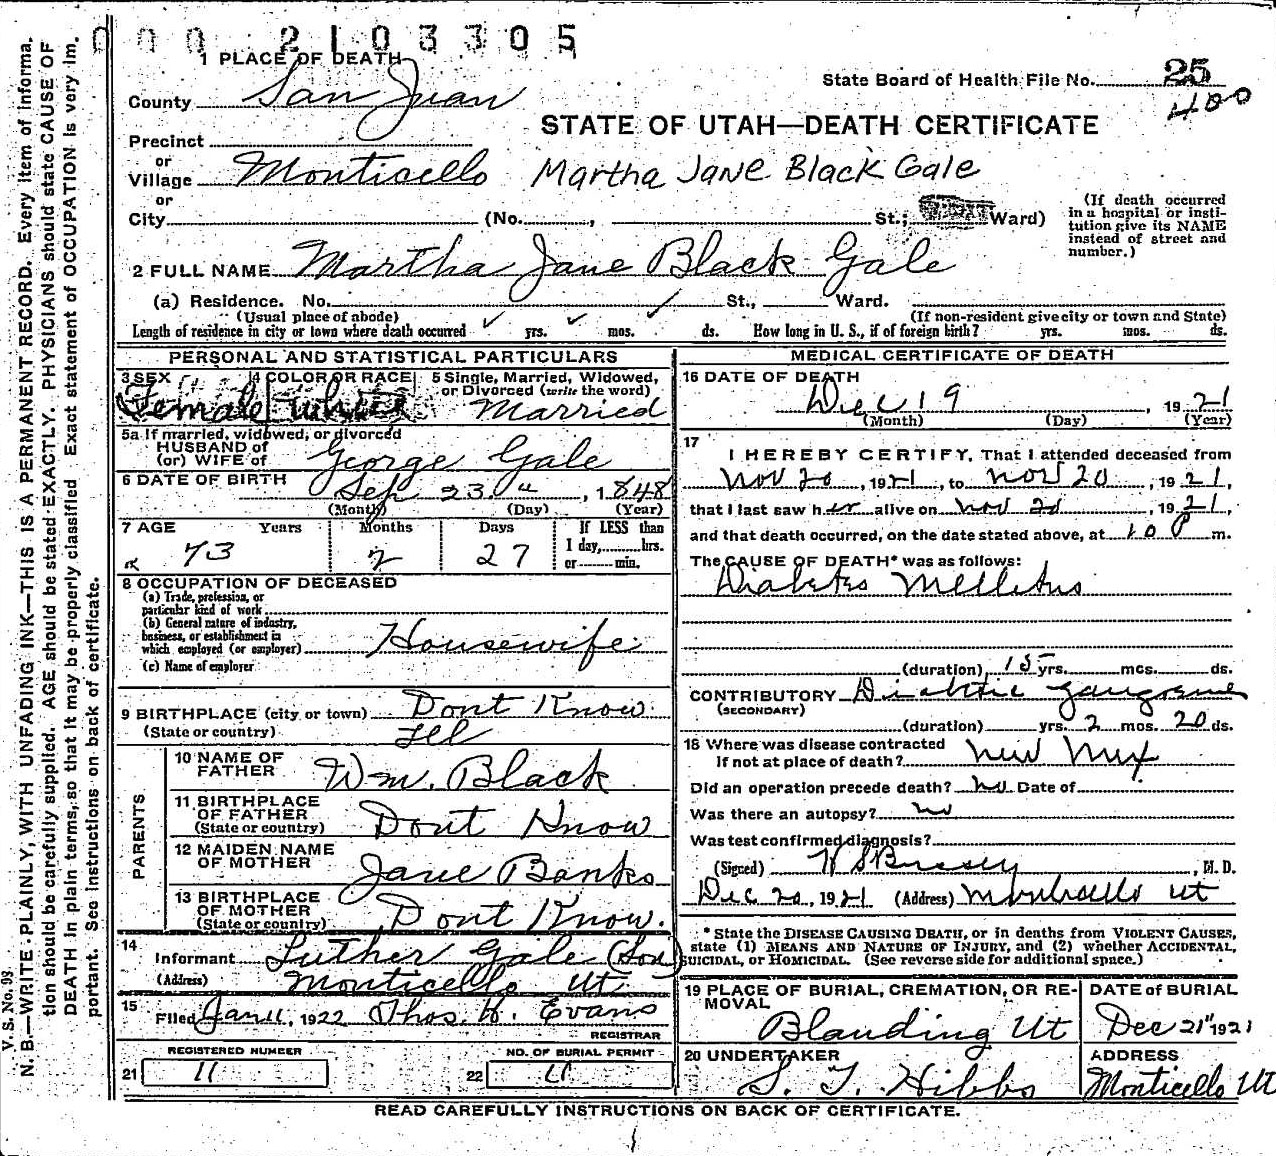 000 2103305
1 PLACE OF DEATH
State Board of Health File No. 25
400
County San Juan
STATE OF UTAH—DEATH CERTIFICATE
Precinct
or
Village Monticello Martha Jane Black Gale
or
City (No. , St.; Ward)
(If death occurred in a hospital or insti-
tution give its NAME instead of street and number.)
2 FULL NAME Martha Jane Black Gale
(a) Residence. No. St., Ward.
(Usual place of abode) (If non-resident give city or town and State)
Length of residence in city or town where death occurred yrs. mos. ds. How long in U. S., if of foreign birth? yrs. mos. ds.
PERSONAL AND STATISTICAL PARTICULARS
3 SEX 4 COLOR OR RACE 5 Single, Married, Widowed,
or Divorced (write the word)
Female White Married
5a If married, widowed, or divorced
HUSBAND of
(or) WIFE of George Gale
6 DATE OF BIRTH Sep 23 " , 1848
(Month) (Day) (Year)
7 AGE Years Months Days If LESS than
73 2 27 1 day, hrs.
or min.
8 OCCUPATION OF DECEASED
(a) Trade, profession, or
particular kind of work
(b) General nature of industry,
business, or establishment in
which employed (or employer) Housewife
(c) Name of employer
9 BIRTHPLACE (city or town) Dont Know
(State or country) Ill
PARENTS
10 NAME OF
FATHER Wm. Black
11 BIRTHPLACE
OF FATHER
(State or country) Dont Know
12 MAIDEN NAME
OF MOTHER Jane Banks
13 BIRTHPLACE
OF MOTHER
(State or country) Dont Know.
14
Informant Luther Gale (Son)
(Address) Monticello Ut
15
Filed Jan 11, 1922 Thos. H. Evans
REGISTRAR
REGISTERED NUMBER NO. OF BURIAL PERMIT
21 11 22 11
MEDICAL CERTIFICATE OF DEATH
16 DATE OF DEATH
Dec 19 , 1921
(Month) (Day) (Year)
17
I HEREBY CERTIFY, That I attended deceased from
Nov 20, 1921, to Nov 20, 1921,
that I last saw her alive on Nov 20, 1921,
and that death occurred, on the date stated above, at 10 P m.
The CAUSE OF DEATH* was as follows:
Diabetes Mellitus
(duration) 15 yrs. mos. ds.
CONTRIBUTORY Diabetic gangrene
(SECONDARY)
(duration) yrs. 2 mos. 20 ds.
18 Where was disease contracted
If not at place of death? New Mex
Did an operation precede death? No Date of
Was there an autopsy? no
Was test confirmed diagnosis?
(Signed) , M. D.
Dec 20, 1921 (Address) Monticello Ut
* State the DISEASE CAUSING DEATH, or in deaths from VIOLENT CAUSES,
state (1) MEANS AND NATURE OF INJURY, and (2) whether ACCIDENTAL,
SUICIDAL, or HOMICIDAL. (See reverse side for additional space.)
19 PLACE OF BURIAL, CREMATION, OR RE-
MOVAL
Blanding Ut
DATE of BURIAL
Dec 21" 1921
20 UNDERTAKER
S. T. Hibbs
ADDRESS
Monticello Ut
READ CAREFULLY INSTRUCTIONS ON BACK OF CERTIFICATE.
V. S. No. 93
N. B.—WRITE PLAINLY, WITH UNFADING INK—THIS IS A PERMANENT RECORD. Every item of informa-
tion should be carefully supplied. AGE should be stated EXACTLY. PHYSICIANS should state CAUSE OF
DEATH in plain terms, so that it may be properly classified. Exact statement of OCCUPATION is very im-
portant. See instructions on back of certificate.